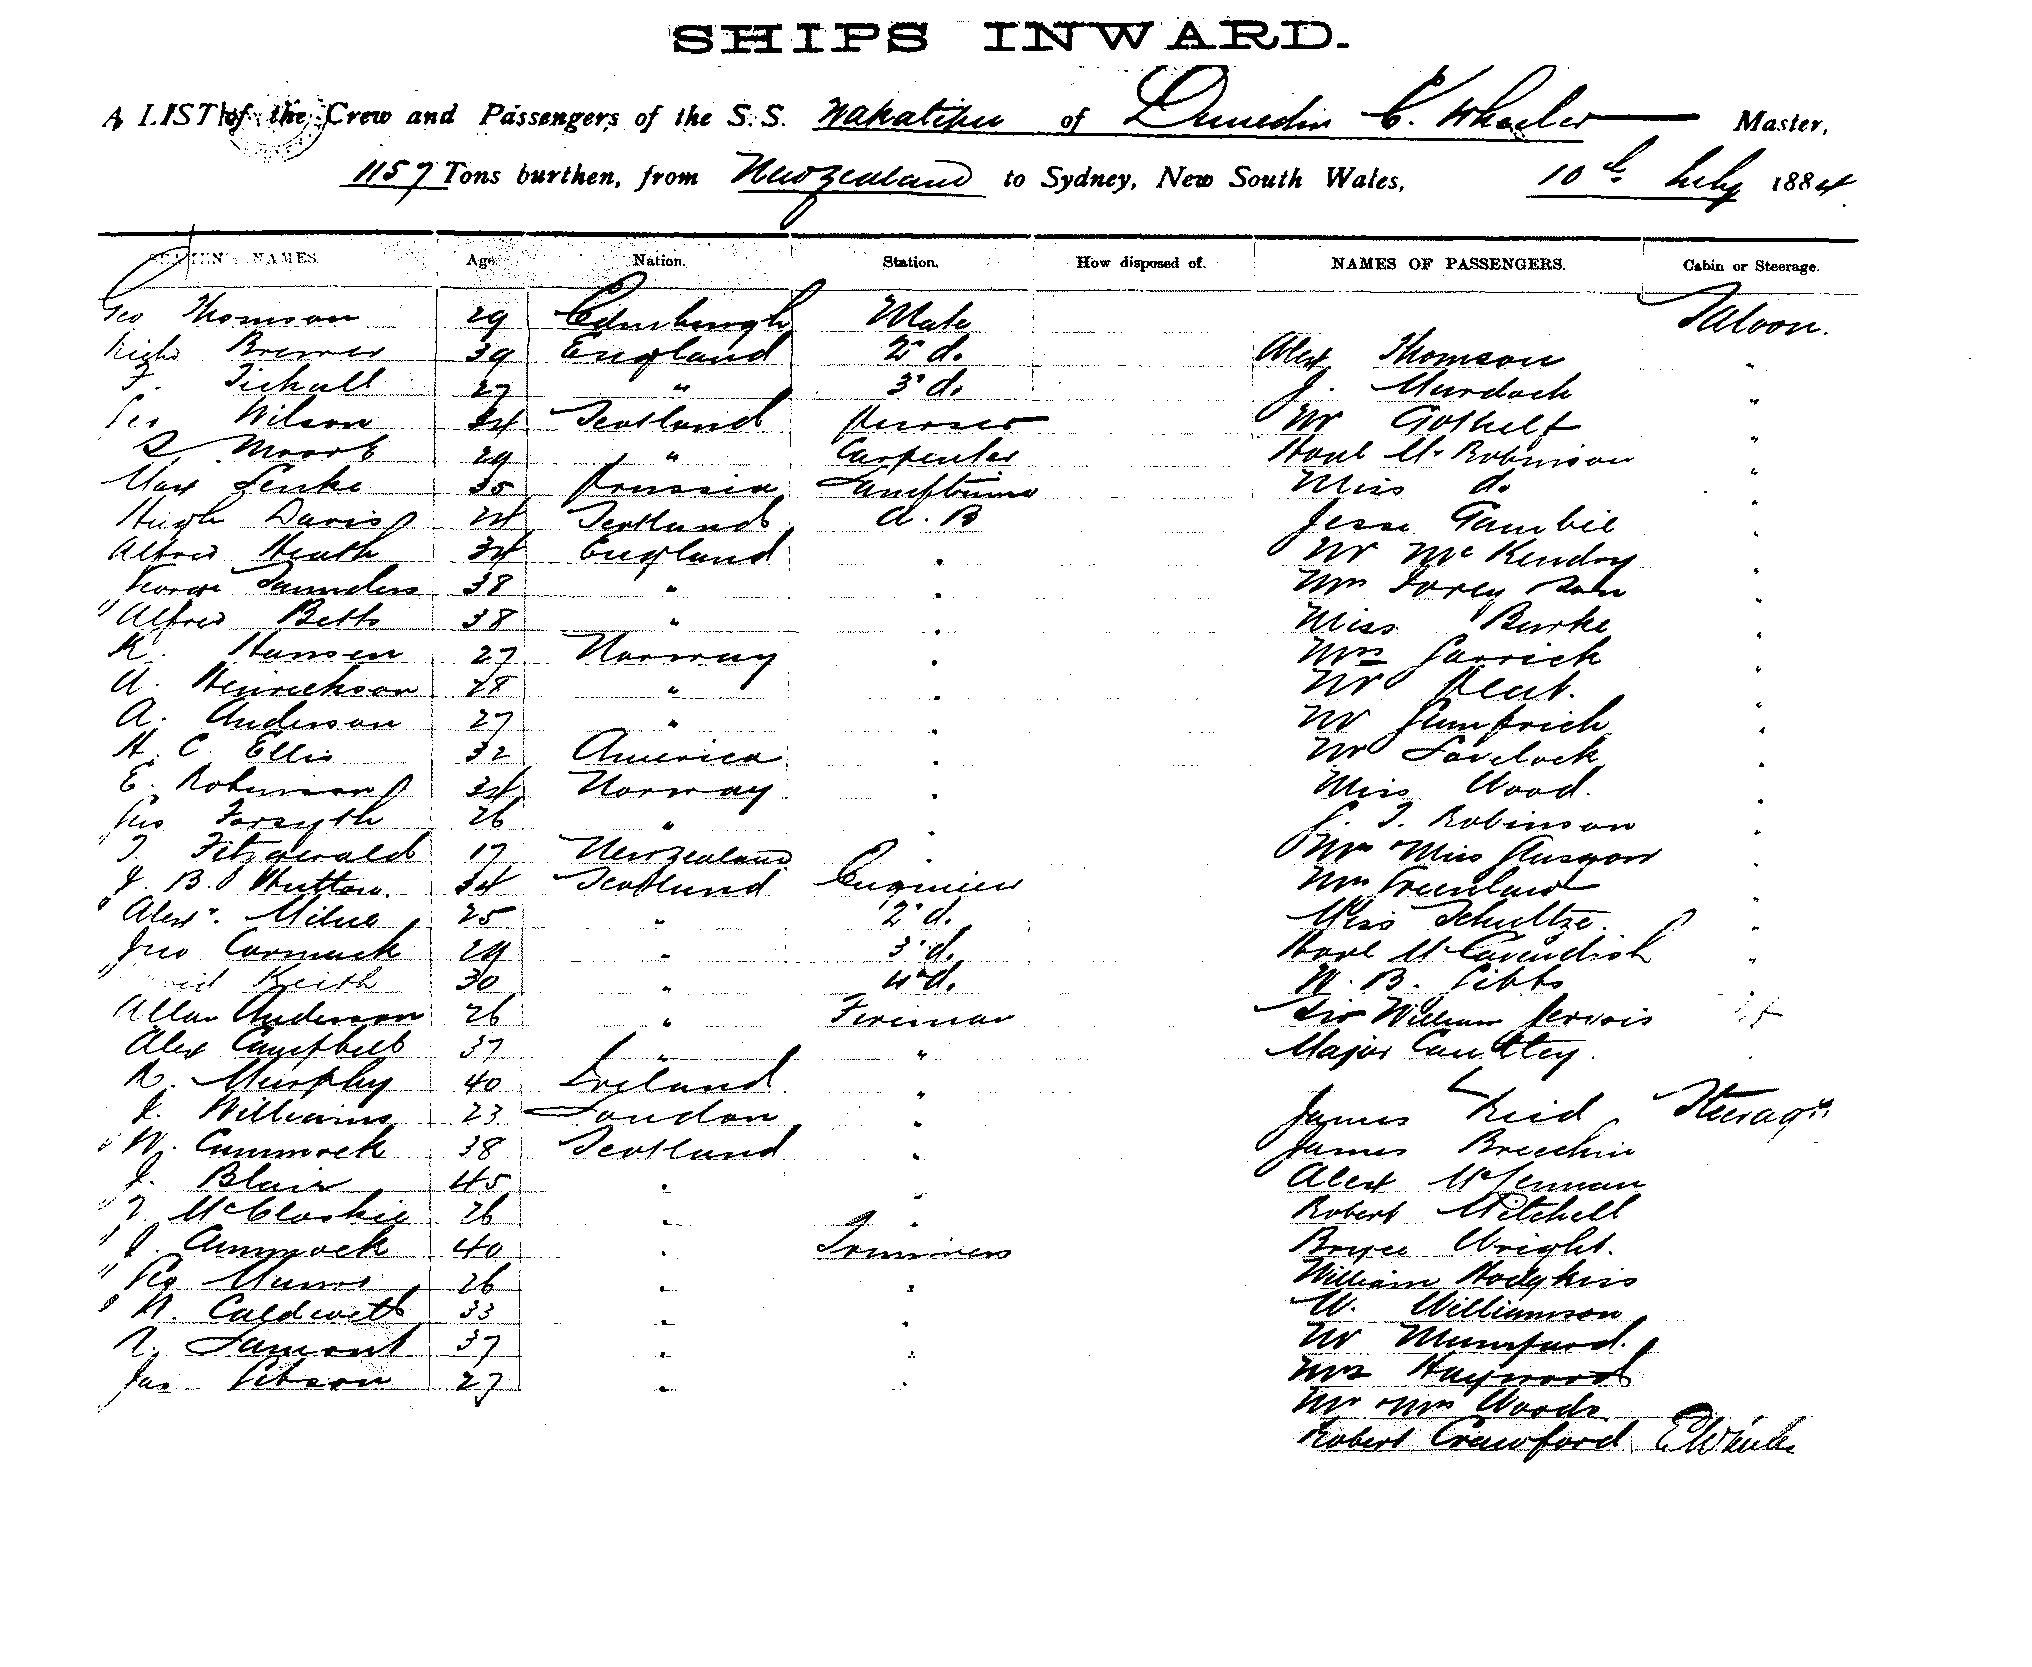 SHIPS INWARD.
A LIST of the Crew and Passengers of the S.S. Wakatipu of Dunedin C. Wheeler Master,
1157 Tons burthen, from New Zealand to Sydney, New South Wales, 10th July 1884.
SEAMEN'S NAMES. Age. Nation. Station. How disposed of. NAMES OF PASSENGERS. Cabin or Steerage.
Geo Thomson 29 Edinburgh Mate Saloon.
Richd Bremer 39 England 2d. Alex Thomson "
F. Tickall 27 " 3d. J. Murdoch "
Geo Wilson 34 Scotland Purser Mr Gothelf "
S Moore 29 " Carpenter Honl Mr Robinson "
Max Lenke 35 Prussia Lamptrimr Miss do "
Hugh Davis 24 Scotland A.B Jesse Gambie "
Alfred Heath 34 England " Mr McKendry "
George Saunders 38 " " Mrs Torey Son "
Alfred Betts 38 " " Miss Burke "
K. Hansen 27 Norway " Mrs Garrick "
A. Heinrickson 28 " " Mr Kent. "
A. Anderson 27 " " Mr "
H. C. Ellis 32 America " Mr Lovelock "
E. Robinson 34 Norway " Miss Wood. "
Jno Forsyth 26 " " J. T. Robinson "
T. Fitzgerald 17 New Zealand " Mrs Miss Glasgow "
J. B. Hutton. 34 Scotland Engineer Mrs Greenlaw "
Alexr. Milne 25 " 2d. Miss Schultze. "
Jno Cormack 29 " 3d. Honl Mr Cavendish "
Keith 30 " 4d. W. B. Gibbs
Allan Anderson 26 " Fireman Sir William Jervois
Alex Campbell 37 " " Major Cautley.
R. Murphy 40 Ireland "
J. Williams 23 London " James Reid Steerage
W. Cammock 38 Scotland " James Brechin
J. Blair 45 " " Alex McLennan
T McCloskie 26 " " Robert Mitchell
J. Cammock 40 " Trimmers Bryce Wright.
Geo Munro 26 " " William Hodgkiss
N. Caldwell 33 " " W. Williamson
N. Lamont 37 " " Mr Mumford.
Jas Gibson 27 " " Mrs Hayward
Mr & Mrs Woods
Robert Crawford C Wheeler